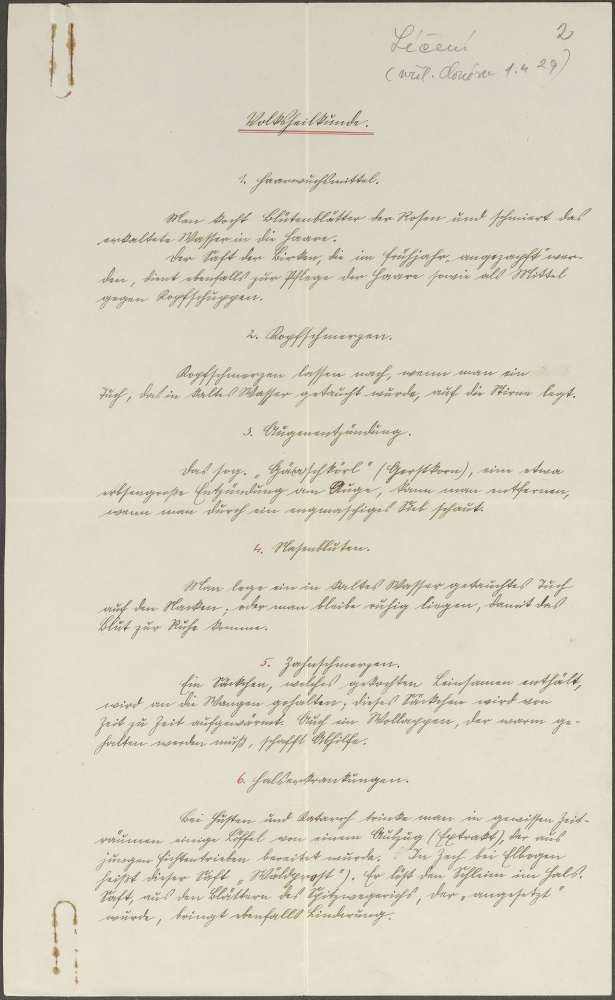 2
Léčení
1.4 29)
Volksheilkunde.
1. Haarwuchsmittel.
Man kocht Blütenblätter der Rosen und schmiert das
erkaltete Wasser in die Haare.
Der Saft der Birken, die im Frühjahr „angezapft“ wer-
den, dient ebenfalls zur Pflege der Haare sowie als Mittel
gegen Kopfschuppen.
2. Kopfschmerzen.
Kopfschmerzen lassen nach, wenn man ein
Tuch, das in kaltes Wasser getaucht wurde, auf die Stirne legt.
3. Augenentzündung.
Das sog. (Gerstkorn), eine etwa
erbsengroße Entzündung am Auge, kann man entfernen,
wenn man durch ein engmaschiges Sieb schaut.
4. Nasenbluten.
Man lege ein in kaltes Wasser getauchtes Tuch
auf den Nacken; oder man bleibe ruhig liegen, damit das
Blut zur Ruhe komme.
5. Zahnschmerzen.
Ein Säckchen, welches gekochten Leinsamen enthält,
wird an die Wangen gehalten; dieses Säckchen wird von
Zeit zu Zeit aufgewärmt. Auch ein Wollappen, der warm ge-
halten werden muß, schafft Abhilfe.
6. Halserkrankungen.
Bei Husten und Katarrh trinke man in gewissen Zeit-
räumen einige Löffel von einem Auszug (Extrakt), der aus
jungen Fichtentrieben bereitet wurde. (In Zech bei Elbogen
heißt dieser Saft ). Er löst den Schleim im Hals.
Saft, aus den Blättern des Spitzwegerichs, der „angesetzt“
wurde, bringt ebenfalls Linderung.